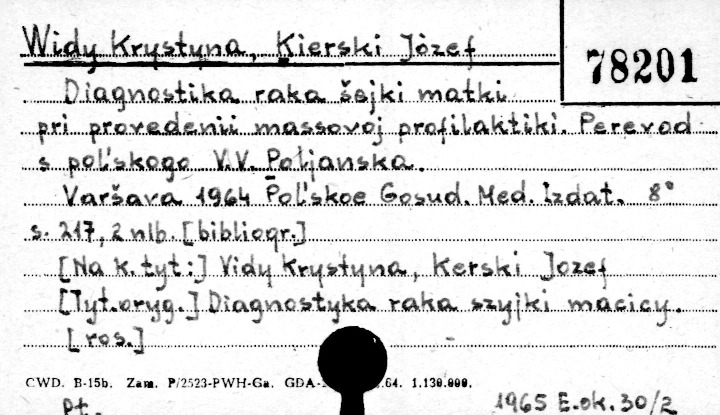 Widy Krystyna, Kierski Józef
78201
Diagnostika raka šejki matki
pri provedenii massovoj profilaktiki. Perevod
s pol'skogo V.V. Poljanska.
Varšava 1964 Pol'skoe Gosud. Med. Izdat. 8°
s. 217, 2 nlb. [bibliogr.]
[Na k. tyt:] Vidy Krystyna, Kerski Jozef
[Tyt. oryg.] Diagnostyka raka szyjki macicy.
[ros.]
CWD. B-15b. Zam. P/2523-PWH-Ga. GDA- .64. 1.130.000.
pt. 1965 E.ok. 30/2